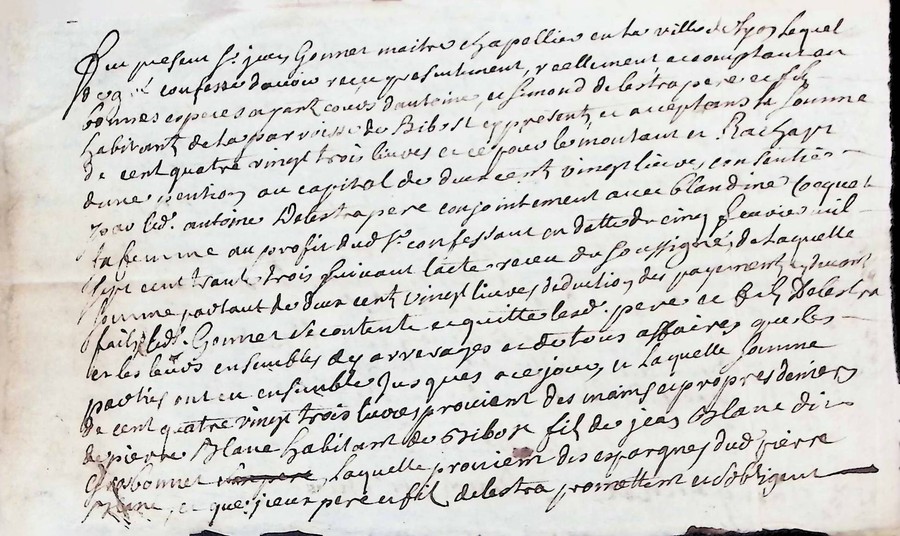 Fut present Sr. jean Gonnet maitre chapellier en la ville de lyon lequel
de gré confesse d'avoir receu presentement, reellement a comptant en
bonnes especes ayant cours d'antoine, et Simond delestra pere et fils
habitants de la parroisse de Bibost cy presents et acceptans la somme
de cent quatre vingt trois livres et ce pour le montant et Rachapt
d'une pention au capital de deux cent vingt livres consentie
par led. antoine Delestra pere conjointement avec blandine Coquet
sa femme au profit dud. Sr. confessant en datte du cinq fevrier mil
sept cent trante trois suivant l'acte receu du soussigné, de laquelle
somme partant de deux cent vingt livres deduction des payements cy devant
faits led. Gonnet se contente et quitte lesd. pere et fils Delestra
et les leurs ensembles des arrerages et de tous affaires que les
parties ont eu ensemble jusques a ce jour, et laquelle somme
de cent quatre vingt trois livres provient des mains et propres deniers
de pierre Blanc habitant de Bibost fils de jean Blanc dit
Grabonnet laquelle provient des espargnes dud. pierre
et que iceux pere et fils delestra promettent et s'obligent